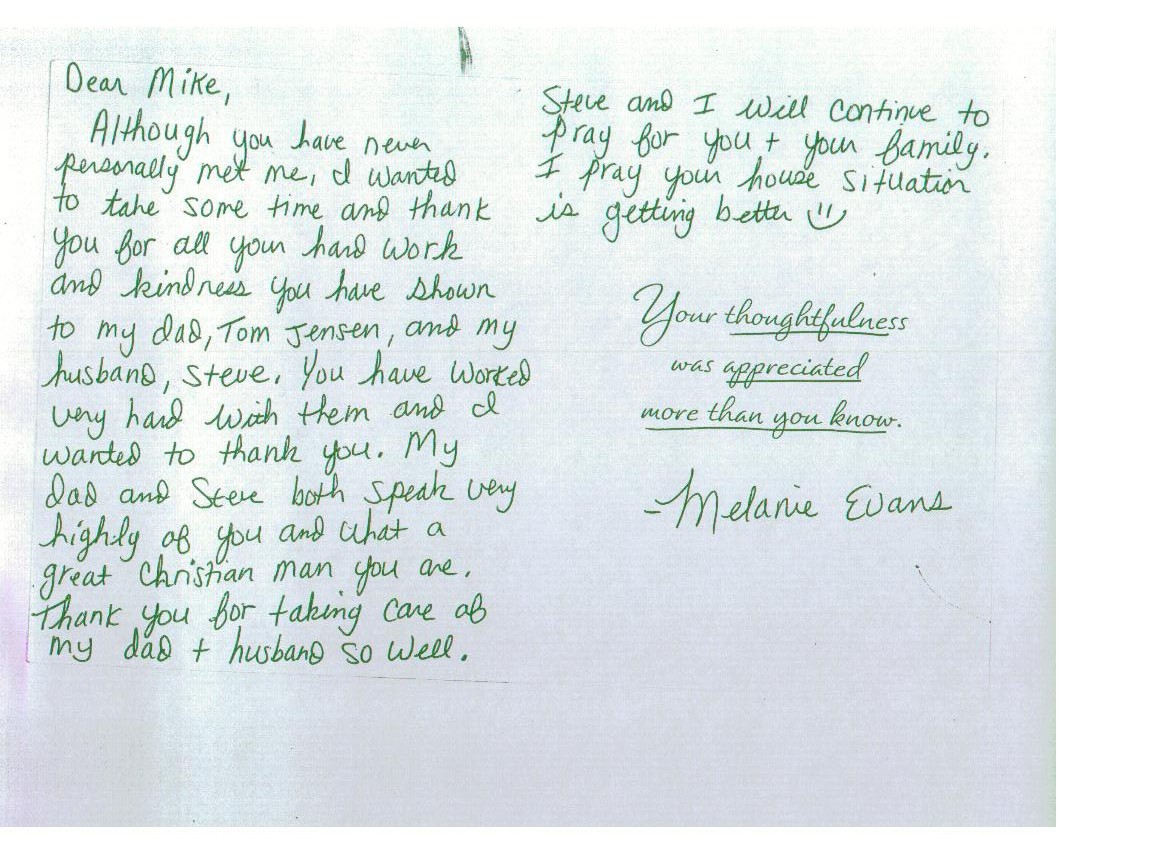 Dear Mike,
Although you have never
personally met me, I wanted
to take some time and thank
you for all your hard work
and kindness you have shown
to my dad, Tom Jensen, and my
husband, Steve. You have worked
very hard with them and I
wanted to thank you. My
dad and Steve both speak very
highly of you and what a
great Christian man you are.
Thank you for taking care of
my dad + husband so well.
Steve and I will continue to
pray for you + your family.
I pray your house situation
is getting better
Your thoughtfulness
was appreciated
more than you know.
-Melanie Evans